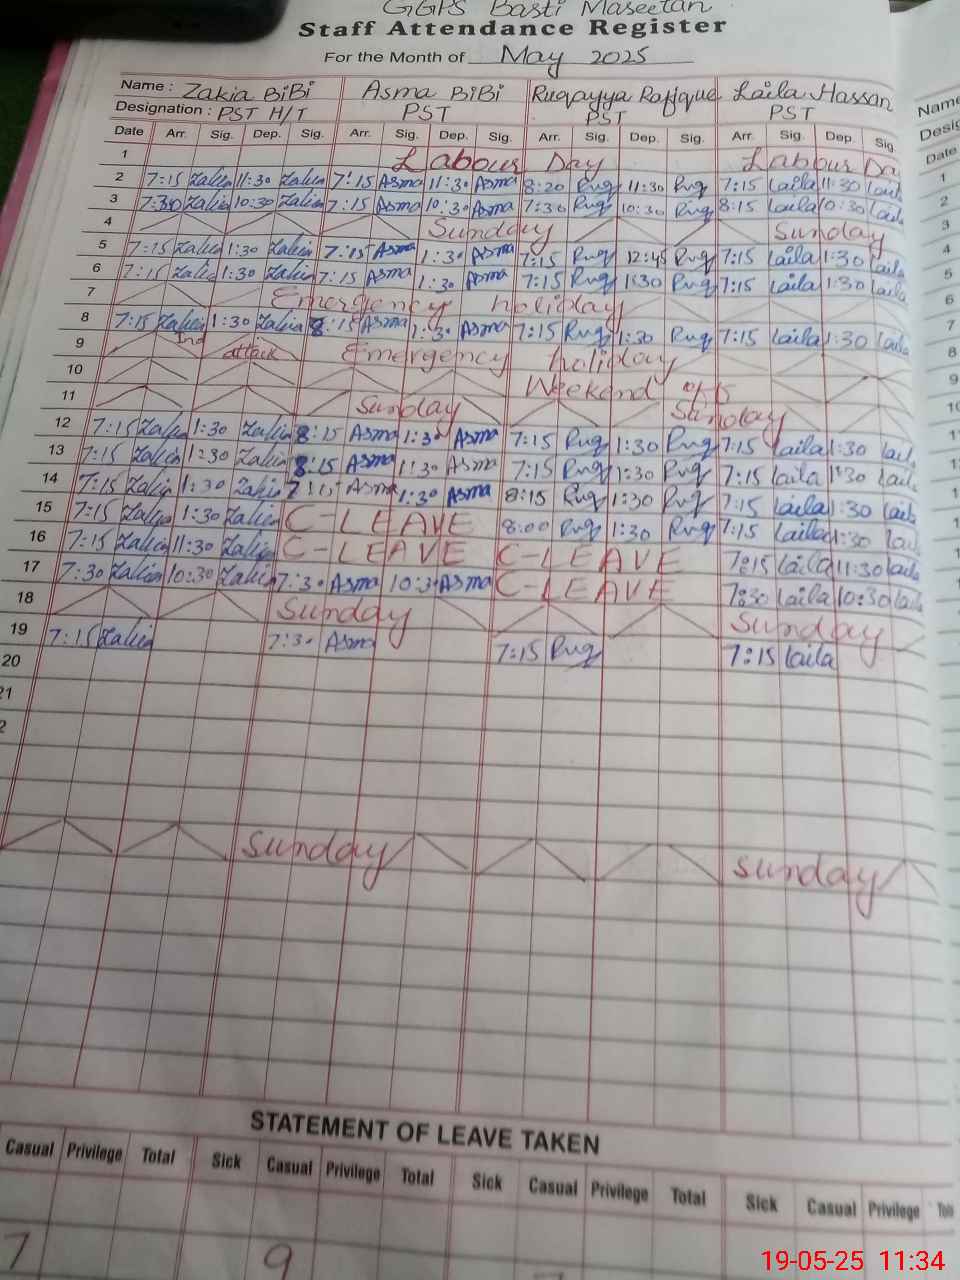 GGPS Basti Maseetan
Staff Attendance Register
For the Month of May 2025
Name : Zakia BiBi Asma BiBi Ruqayya Rafique Laila Hassan Name
Designation : PST H/T PST PST PST
Date Arr. Sig. Dep. Sig. Arr. Sig. Dep. Sig. Arr. Sig. Dep. Sig. Arr. Sig. Dep. Sig. Date
1 Labour Day Labour Da
2 7:15 Zakia 11:30 Zakia 7:15 Asma 11:30 Asma 8:20 Ruq 11:30 Ruq 7:15 Laila 11:30 Laila
3 7:30 Zakia 10:30 Zakia 7:15 Asma 10:30 Asma 7:30 Ruq 10:30 Ruq 8:15 Laila 10:30 Laila
4 Sunday Sunday
5 7:15 Zakia 1:30 Zakia 7:15 Asma 1:30 Asma 7:15 Ruq 12:45 Ruq 7:15 Laila 1:30 Laila
6 7:15 Zakia 1:30 Zakia 7:15 Asma 1:30 Asma 7:15 Ruq 1:30 Ruq 7:15 Laila 1:30 Laila
7 Emergency holiday
8 7:15 Zakia 1:30 Zakia 8:15 Asma 1:30 Asma 7:15 Ruq 1:30 Ruq 7:15 Laila 1:30 Laila
9 Ind attack Emergency holiday
10 Weekend
11 Sunday Sunday
12 7:15 Zakia 1:30 Zakia 8:15 Asma 1:30 Asma 7:15 Ruq 1:30 Ruq 7:15 Laila 1:30 Laila
13 7:15 Zakia 1:30 Zakia 8:15 Asma 1:30 Asma 7:15 Ruq 1:30 Ruq 7:15 Laila 1:30 Laila
14 7:15 Zakia 1:30 Zakia 7:15 Asma 1:30 Asma 8:15 Ruq 1:30 Ruq 7:15 Laila 1:30 Laila
15 7:15 Zakia 1:30 Zakia C-LEAVE 8:00 Ruq 1:30 Ruq 7:15 Laila 1:30 Laila
16 7:15 Zakia 11:30 Zakia C-LEAVE C-LEAVE 7:15 Laila 11:30 Laila
17 7:30 Zakia 10:30 Zakia 7:30 Asma 10:30 Asma C-LEAVE 7:30 Laila 10:30 Laila
18 Sunday Sunday
19 7:15 Zakia 7:30 Asma 7:15 Ruq 7:15 Laila
20
21
2
Sunday Sunday
STATEMENT OF LEAVE TAKEN
Casual Privilege Total Sick Casual Privilege Total Sick Casual Privilege Total Sick Casual Privilege
7 9
19-05-25 11:34